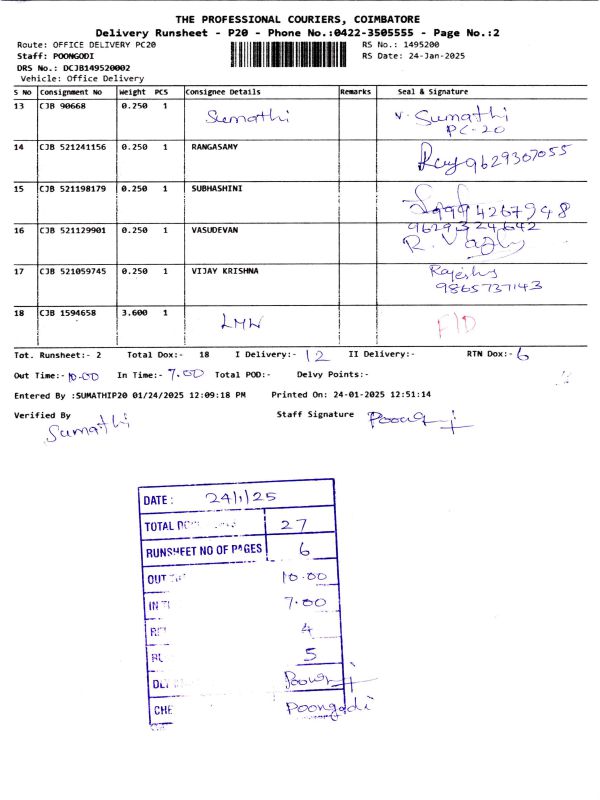 THE PROFESSIONAL COURIERS, COIMBATORE
Delivery Runsheet - P20 - Phone No.:0422-3505555 - Page No.:2
Route: OFFICE DELIVERY PC20 RS No.: 1495200
Staff: POONGODI RS Date: 24-Jan-2025
DRS No.: DCJB149520002
Vehicle: Office Delivery
S No Consignment No Weight PCS Consignee Details Remarks Seal & Signature
13 CJB 90668 0.250 1 Sumathi V. Sumathi
PC-20
14 CJB 521241156 0.250 1 RANGASAMY 9629307055
15 CJB 521198179 0.250 1 SUBHASHINI 9994267948
16 CJB 521129901 0.250 1 VASUDEVAN 9629324642
17 CJB 521059745 0.250 1 VIJAY KRISHNA Rajesh
9865737143
18 CJB 1594658 3.600 1 LMW F/D
Tot. Runsheet:- 2 Total Dox:- 18 I Delivery:- 12 II Delivery:- RTN Dox:- 6
Out Time:- 10.00 In Time:- 7.00 Total POD:- Delvy Points:-
Entered By :SUMATHIP20 01/24/2025 12:09:18 PM Printed On: 24-01-2025 12:51:14
Verified By Staff Signature
Sumathi
DATE : 24/1/25
TOTAL 27
RUNSHEET NO OF PAGES 6
OUT 10.00
IN 7.00
4
5
Poongodi